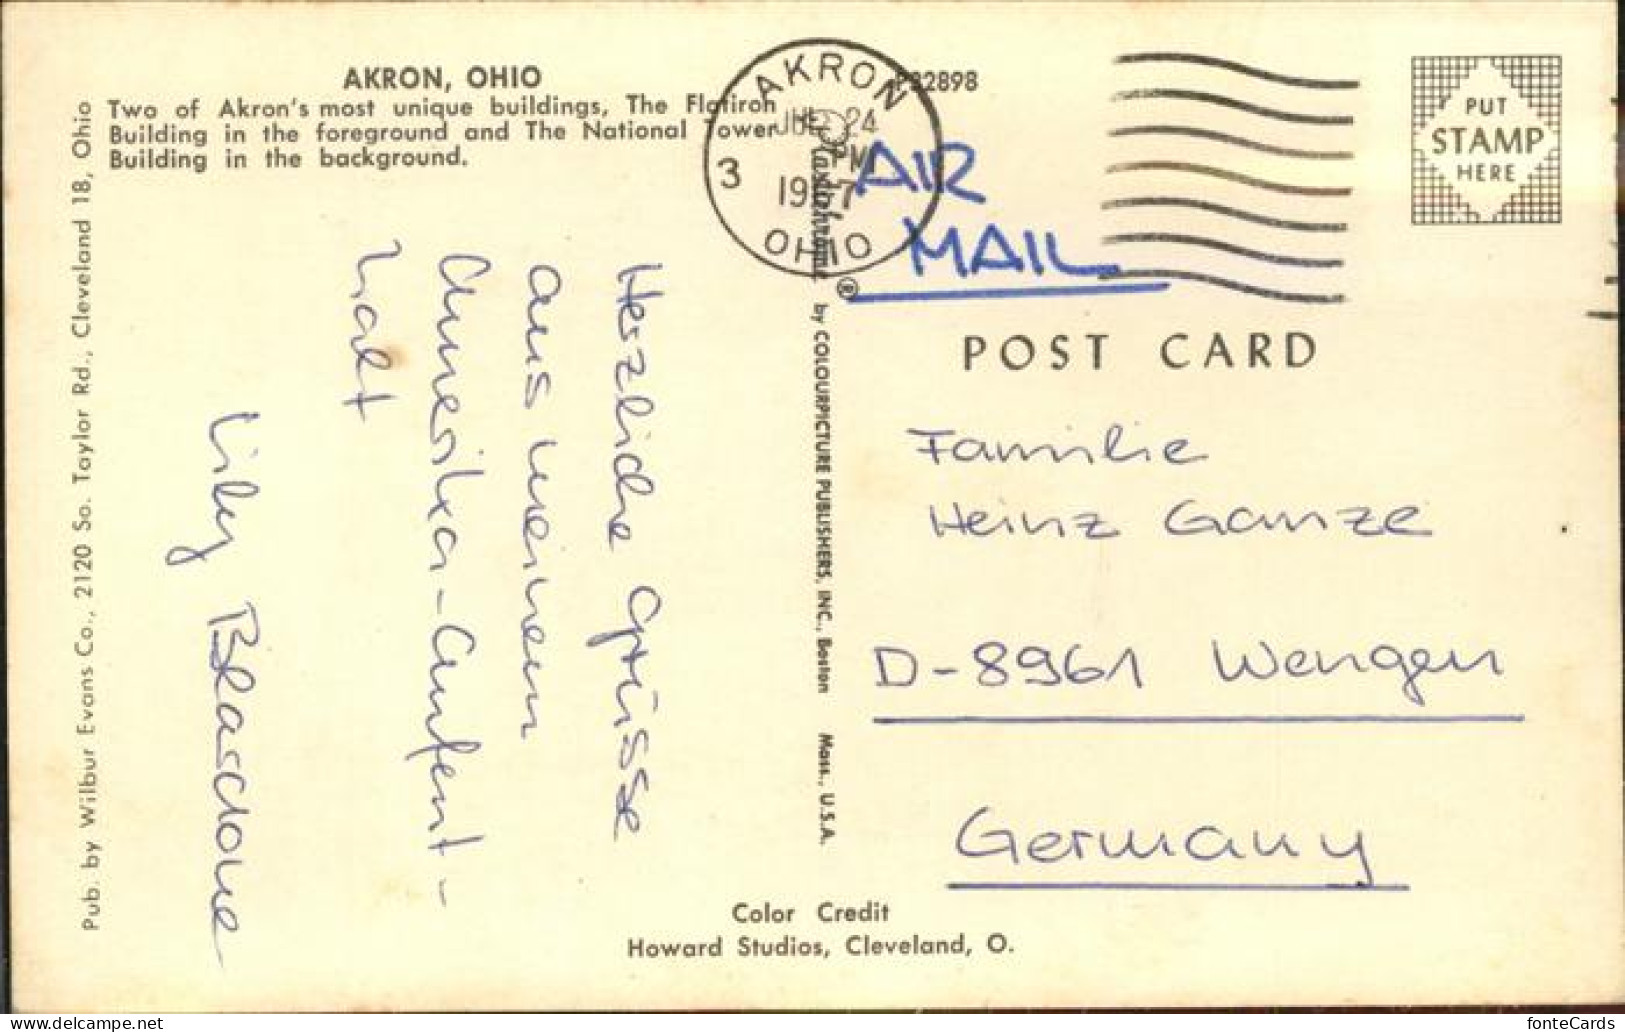 AKRON, OHIO
Two of Akron's most unique buildings, The Flatiron
Building in the foreground and The National Tower
Building in the background.
Pub. by Wilbur Evans Co., 2120 So. Taylor Rd., Cleveland 18, Ohio
Herzliche Grüsse
aus meinem
Amerika-Aufent-
halt
Lily
AKRON
24
PM
3
OHIO
32898
AIR
MAIL
PUT
STAMP
HERE
Plastichrome ® by COLOURPICTURE PUBLISHERS, INC., Boston Mass., U.S.A.
POST CARD
Familie
Heinz Ganze
D-8961 Wengen
Germany
Color Credit
Howard Studios, Cleveland, O.
fonteCards